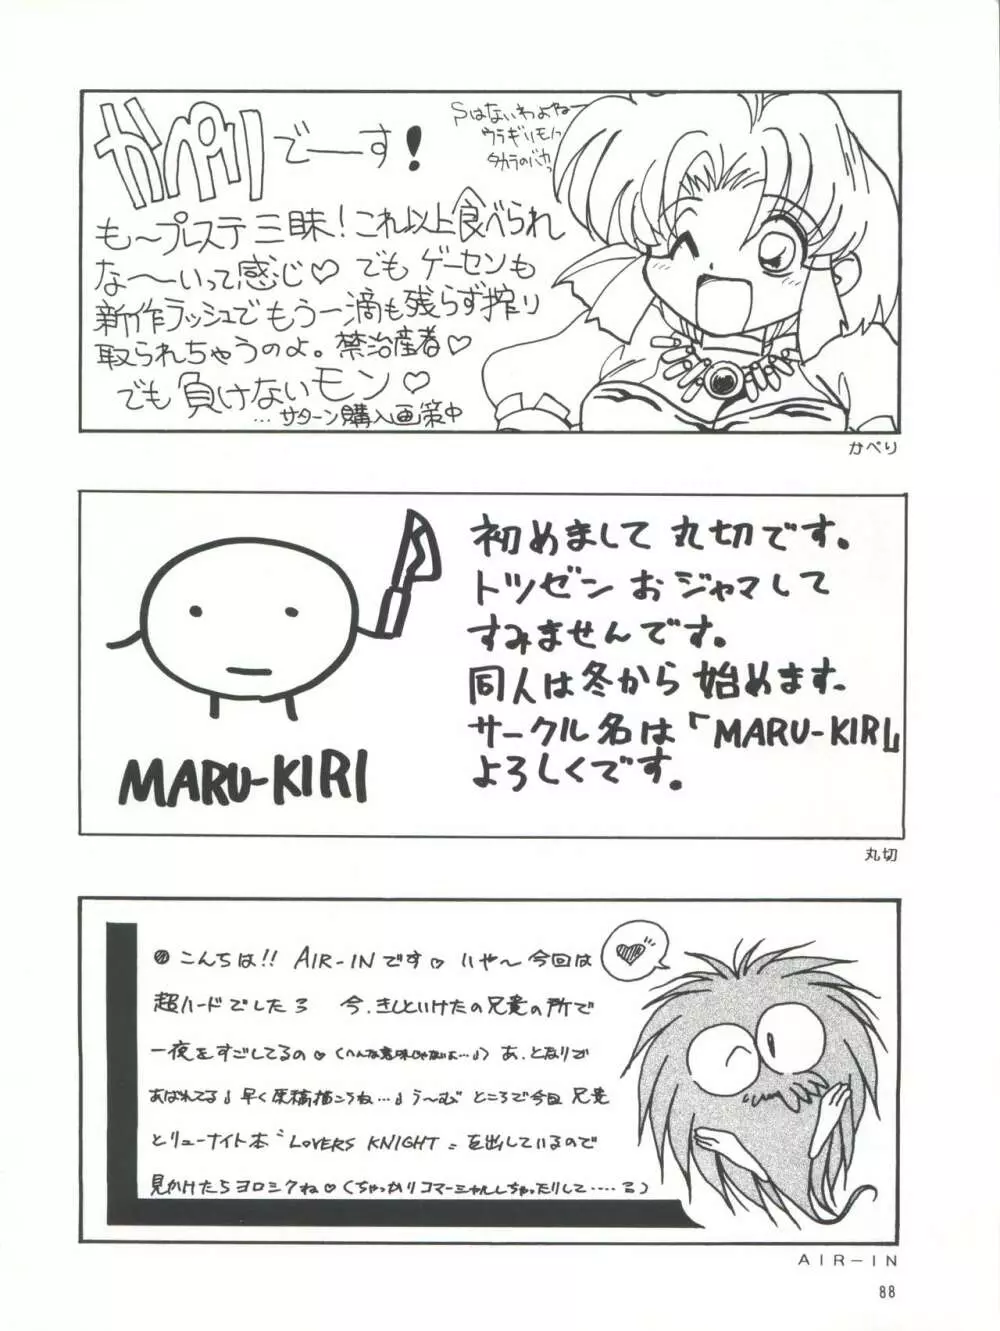 かぺりでーす!
Sはないわよねー
ウラギリモノッ
タカラのバカっ
も〜プレステ三昧!これ以上食べられ
な〜いって感じ♡でもゲーセンも
新作ラッシュでもう一滴も残らず搾り
取られちゃうのよ。禁治産者♡
でも負けないモン♡
…サターン購入画策中
かぺり
初めまして丸切です。
トツゼンおジャマして
すみませんです。
同人は冬から始めます。
サークル名は「MARU-KIRI」
よろしくです。
MARU-KIRI
丸切
こんちは!! AIR-INです♡ いや〜今回は
超ハードでしたろ 今、きしといけたの兄貴の所で
一夜をすごしてるの♡(へんな意味じゃないよ…♪)あ、となりで
あばれてる♪早く原稿描こうね…♪う〜むどところで今回兄貴
とリューナイト本〝LOVERS KNIGHT〟を出しているので
見かけたらヨロシクね♡(ちゃっかりコマーシャルしちゃったりして……ろ)
AIR-IN
88